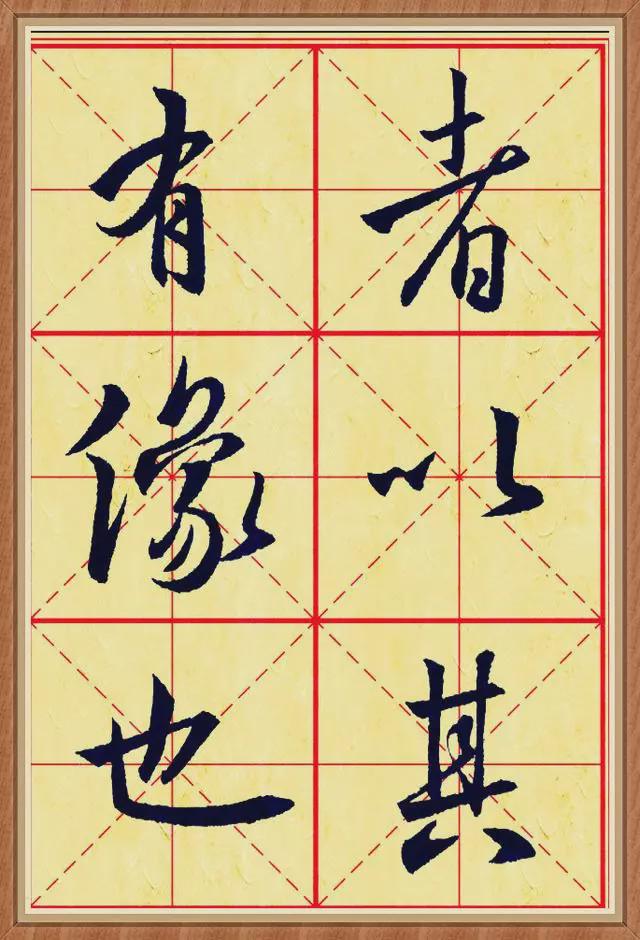 者以其
有像也